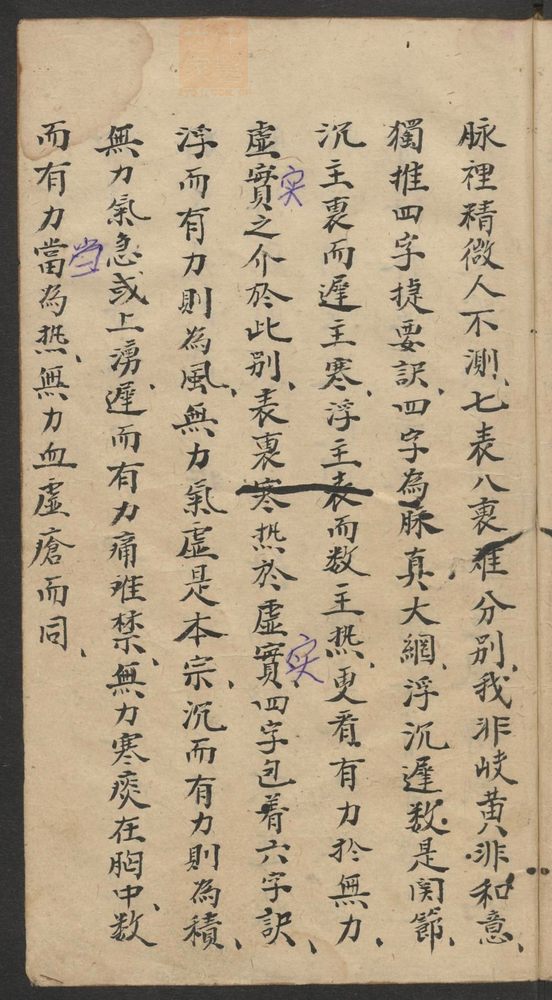 脉裡精微人不測、七表八裏难分别、我非岐黄非和意、
獨推四字捷要訣、四字為脉真大網、浮沉遲数是関節、
沉主裏而遲主寒、浮主表而数主热、更看有力於無力、
虛實之介於此别、表裏寒热於虛實、四字包着六字訣、
实
实
浮而有力則為風、無力氣虛是本宗、沉而有力則為積、
無力氣急或上湧、遲而有力痛难禁、無力寒痰在胸中、数
当
而有力當為热、無力血虛瘡而同、